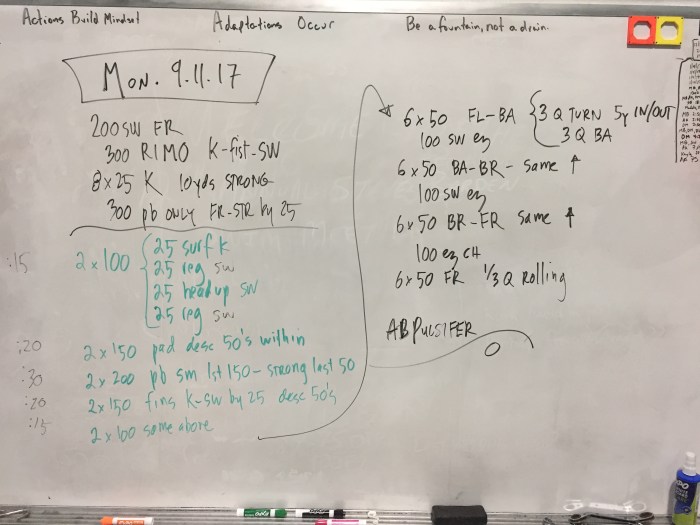 Actions Build Mindset
Adaptations Occur
Be a fountain, not a drain.
Mon. 9.11.17
200 SW FR
300 RIMO K-fist-SW
8x25 K 10yds STRONG
300 pb ONLY FR-STR by 25
:15 2x100 { 25 surf K
25 reg SW
25 head up SW
25 reg SW
:20 2x150 pad desc 50's within
:30 2x200 pb sm 1st 150-strong last 50
:20 2x150 fins K-SW by 25 desc 50's
:15 2x100 same above
6x50 FL-BA { 3 Q TURN 5y IN/OUT
100 SW ez 3 Q BA
6x50 BA-BR- same ↑
100 SW ez
6x50 BR-FR same ↑
100 ez CH
6x50 FR 1/3 Q Rolling
AB PULSIFER